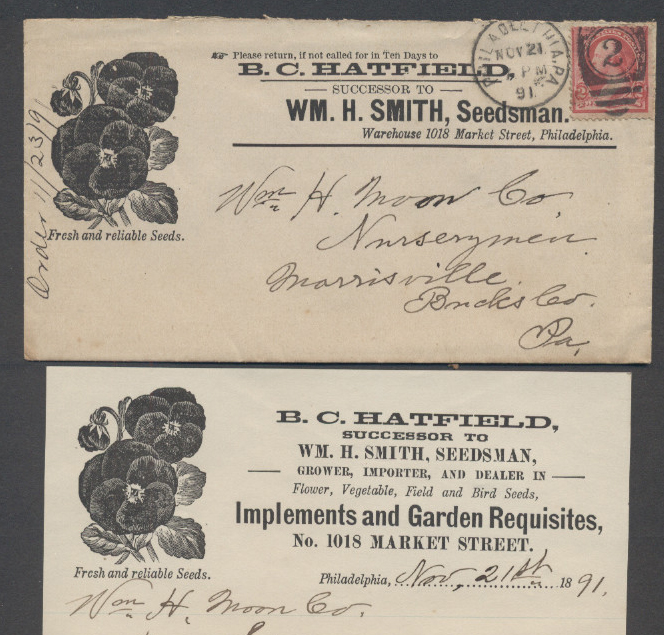 Please return, if not called for in Ten Days to
B. C. HATFIELD,
SUCCESSOR TO
WM. H. SMITH, Seedsman.
Warehouse 1018 Market Street, Philadelphia.
PHILADELPHIA, PA.
NOV 21
PM
91
2
Order 11/23/91
Fresh and reliable Seeds.
Wm H. Moon Co
Nurserymen
Morrisville
Bucks Co.
Pa,
B. C. HATFIELD,
SUCCESSOR TO
WM. H. SMITH, SEEDSMAN,
GROWER, IMPORTER, AND DEALER IN
Flower, Vegetable, Field and Bird Seeds,
Implements and Garden Requisites,
No. 1018 MARKET STREET.
Fresh and reliable Seeds.
Philadelphia, Nov, 21st 1891.
Wm H. Moon Co.